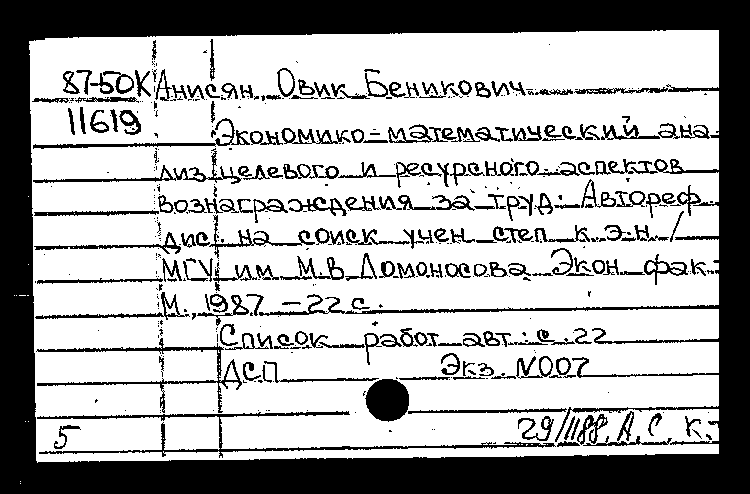 87-50К Анисян, Овик Беникович
11619 Экономико-математический ана-
лиз целевого и ресурсного аспектов
вознаграждения за труд: Автореф.
дис. на соиск. учен. степ. к.э.н. /
МГУ им. М.В. Ломоносова. Экон. фак.-
М., 1987. - 22 с.
Список работ авт.: с. 22
ДСП Экз. N007
5 29/1188. А.С. К.-